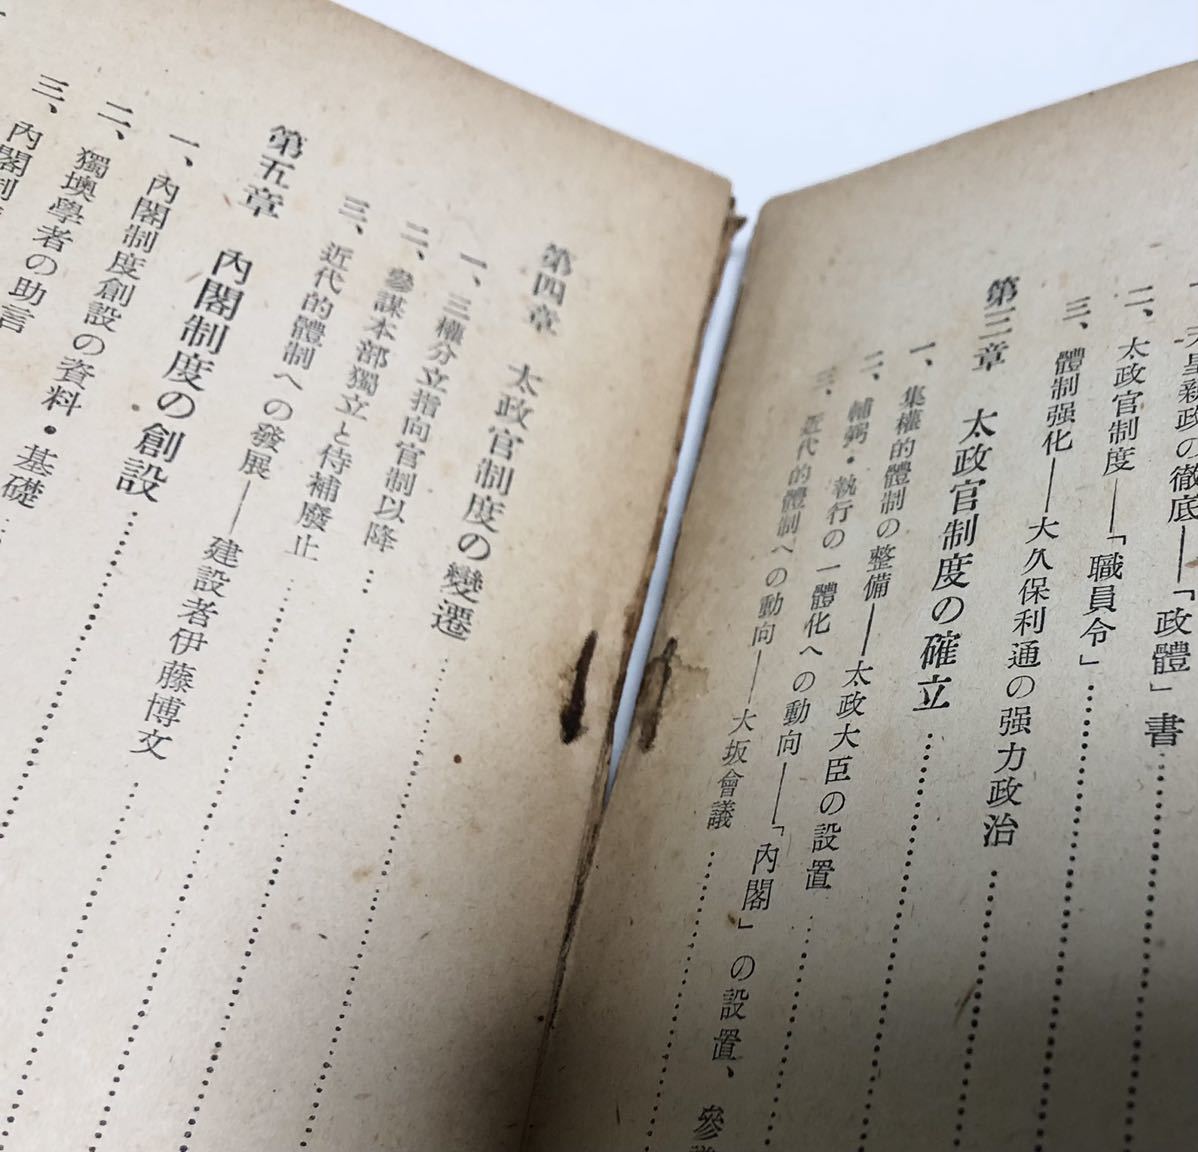 一、天皇親政の徹底――「政體」書…………
二、太政官制度――「職員令」…………
三、體制强化――大久保利通の强力政治…………
第三章　太政官制度の確立…………
一、集權的體制の整備――太政大臣の設置…………
二、輔弼・執行の一體化への動向――「內閣」の設置、參
三、近代的體制への動向――大坂會議…………
第四章　太政官制度の變遷…………
一、三權分立指向官制以降…………
二、參謀本部獨立と侍補廢止…………
三、近代的體制への發展――建設者伊藤博文…………
第五章　內閣制度の創設…………
一、內閣制度創設の資料・基礎…………
二、獨墺學者の助言
三、內閣制